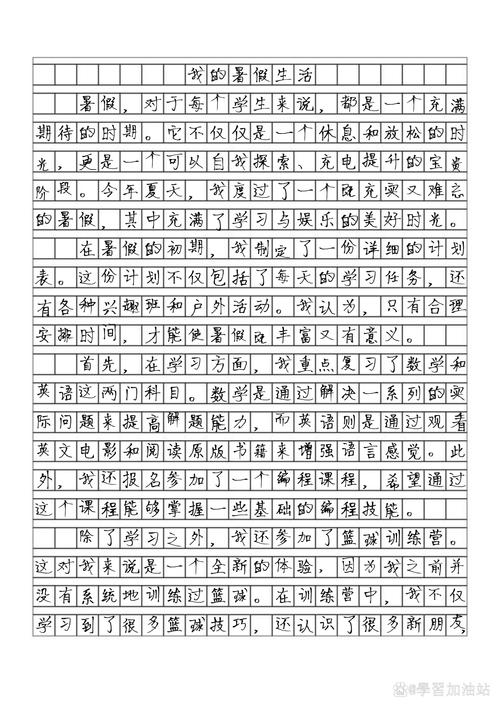 我的暑假生活
暑假，对于每个学生来说，都是一个充满
期待的时期。它不仅仅是一个休息和放松的时
光，更是一个可以自我探索、充电提升的宝贵
阶段。今年夏天，我度过了一个既充实又难忘
的暑假，其中充满了学习与娱乐的美好时光。
在暑假的初期，我制定了一份详细的计划
表。这份计划不仅包括了每天的学习任务，还
有各种兴趣班和户外活动。我认为，只有合理
安排时间，才能使暑假既丰富又有意义。
首先，在学习方面，我重点复习了数学和
英语这两门科目。数学是通过解决一系列的实
际问题来提高解题能力，而英语则是通过观看
英文电影和阅读原版书籍来增强语言感觉。此
外，我还报名参加了一个编程课程，希望通过
这个课程能够掌握一些基础的编程技能。
除了学习之外，我还参加了篮球训练营。
这对我来说是一个全新的体验，因为我之前并
没有系统地训练过篮球。在训练营中，我不仅
学习到了很多篮球技巧，还认识了很多新朋友，
@學習加油站